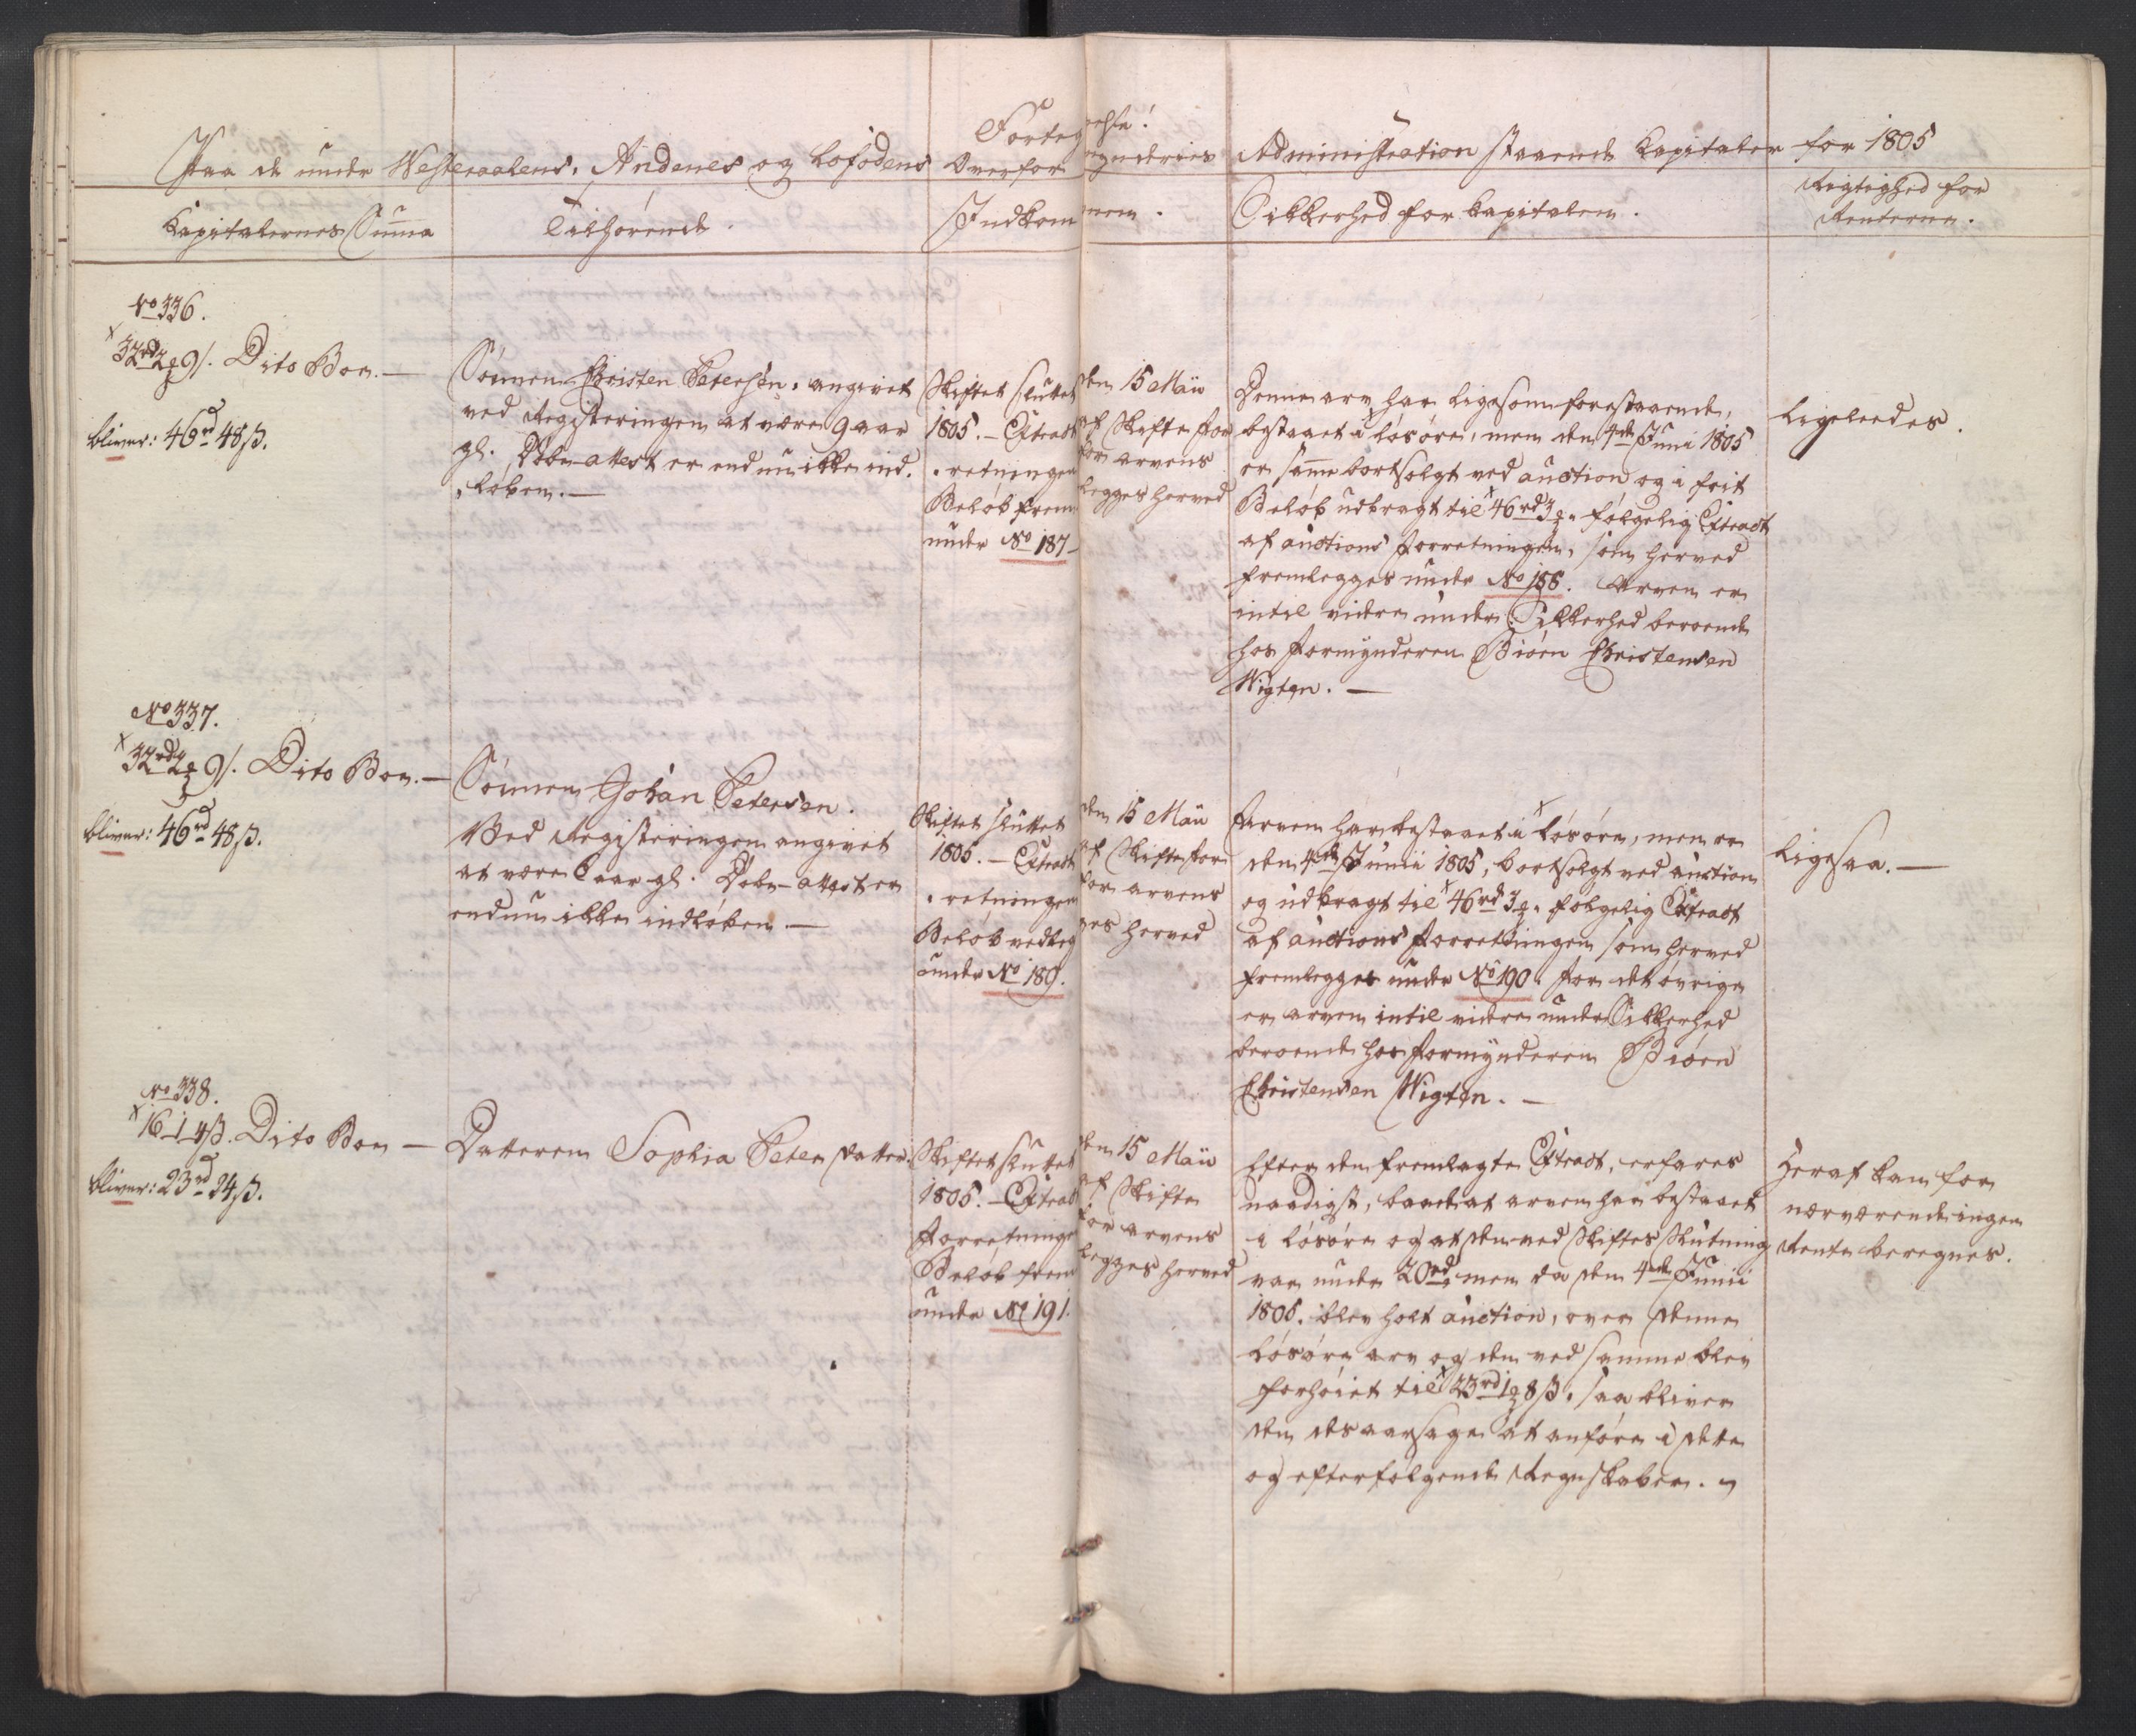 Forteg nelse!
Paa de under Westeraalens, Andenes og Lofodens Overfor mynderies Administration staaende Kapitaler for 1805
Kapitalernes Suma
Tilhørende.
Indkom men.
Sikkerhed for Kapitalen.
Rigtighed for
Renterne.
No 336.
x 32rd 2 9/. Dito Boe. —
bliver: 46rd 48 s.
Sønnen Christen Petersen, angivet
ved Registeringen at være 9 aar
gl. Døbe-attest er endnu ikke ind-
løben. —
Skiftet sluttet den 15 Maii
1805. — Extract af Skifte For
retningen for arvens
Beløb frem legges herved
under No 187
Denne arv har ligesom forestaaende,
bestaaet i x Løsøre, men den 4de Juni 1805
er same bortsolgt ved auction og i frit
Beløb udbragt til x 46rd 3, følgelig Extract
af auctions Forretningen, som herved
fremlegges under No 188. Arven er
intil videre under Sikkerhed beroende
hos Formynderen Biørn Christensen
Wigten. —
Ligeleedes.
No 337.
x 32rd 2 9/. Dito Boe. —
bliver: 46rd 48 s.
Sønnen Johan Petersen.
Ved Registeringen angivet
at være 6 aar gl. Døbe-attest er
endnu ikke indløben. —
Skiftet sluttet den 15 Maii
1805. — Extract af Skifte For
retningen for arvens
Beløb vedleg ges herved
under No 189.
Arven har bestaaet i x Løsøre, men er
den 4de Junii 1805, bortsolgt ved auction
og udbragt til x 46rd 3, følgelig Extract
af auctions Forretningen som herved
fremlegges under No 190. For det øvrige
er arven intil videre under Sikkerhed
beroende hos Formynderen Biørn
Christensen Wigten. —
Ligesaa. —
No 338.
x 16-1-4 s. Dito Boe —
bliver: 23rd 24 s.
Datteren Sophia Peters datter.
Skiftet sluttet den 15 Maii
1805. — Extract af Skifte
Forretninge for arvens
Beløb frem legges herved
under No 191.
Efter den fremlagte Extract, erfares
naadigst, baade at arven har bestaaet
i Løsøre og at den ved Skiftes Slutning
var under 20rd, men da den 4de Junii
1805. blev holt auction, over denne
Løsøre arv og den ved samme blev
forhøiet til x 23rd 1 8 s, saa bliver
den desaarsage at anføre i dette
og efterfølgende Regnskaber.
Heraf kan for
nærværende ingen
Rente beregnes.